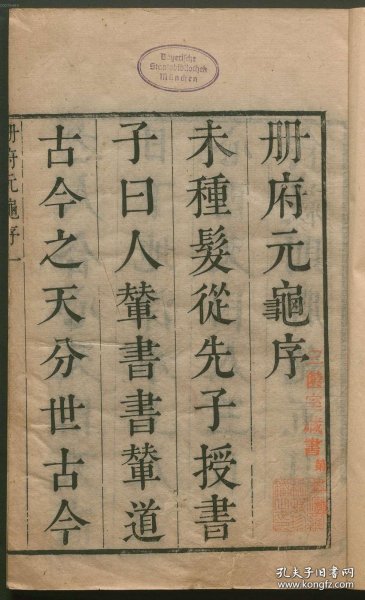 册府元龜序
未種髮從先子授書
子曰人輦書書輦道
古今之天分世古今
册府元龜序 一
Bayerische
Staatsbibliothek
München
藏書
孔夫子旧书网